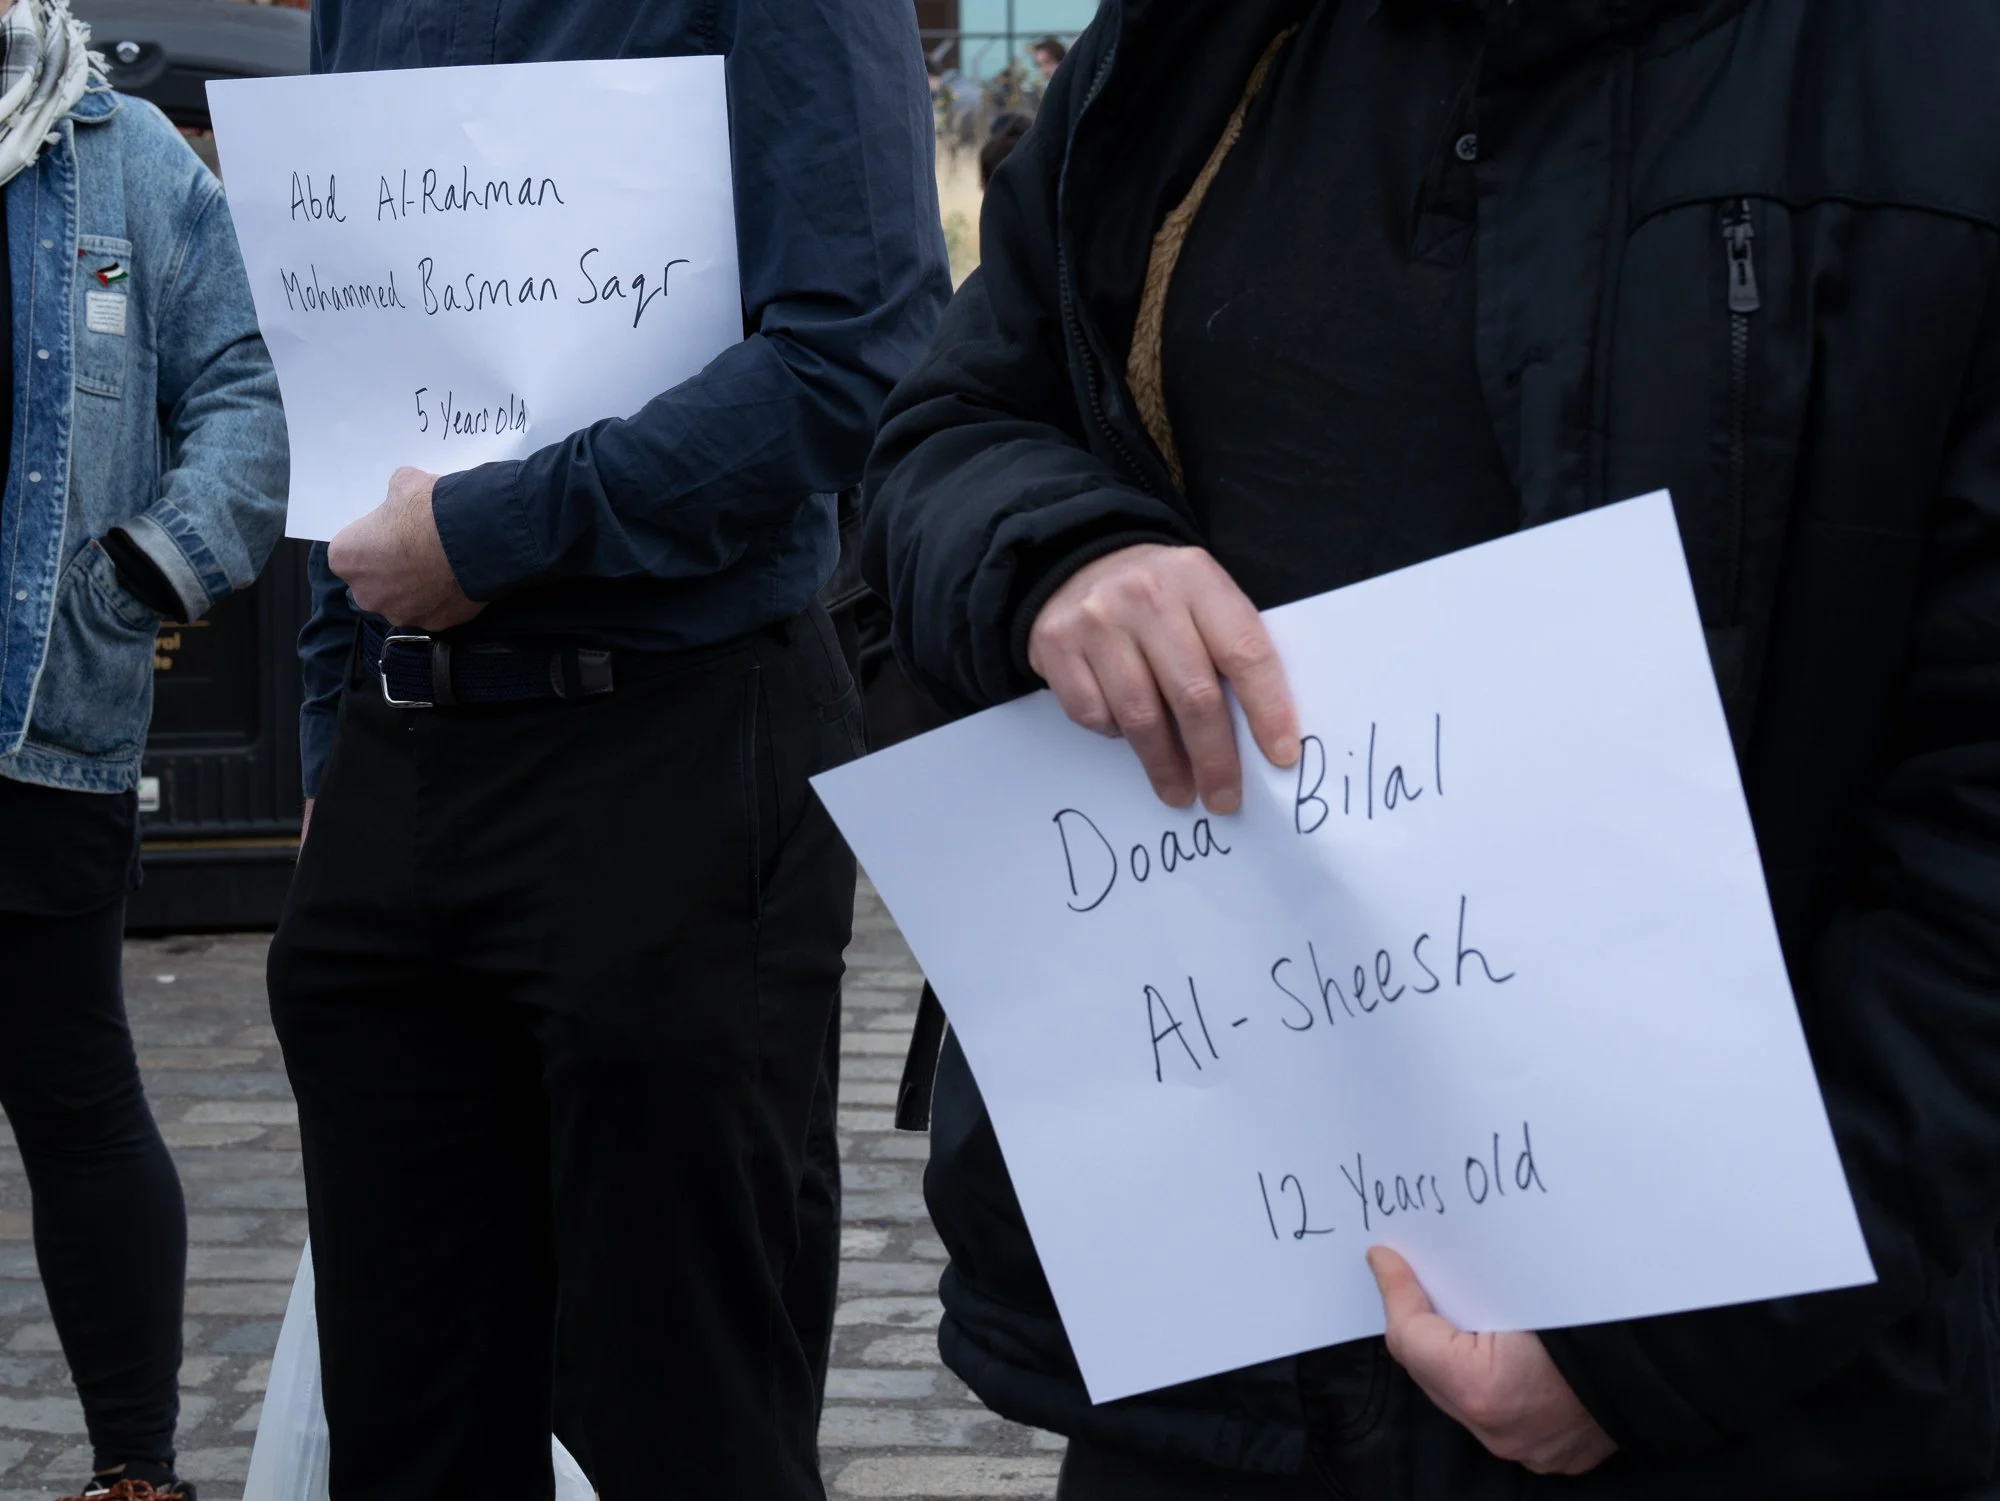 Abd Al-Rahman
Mohammed Basman Saqr
5 Years old
Doaa Bilal
Al-Sheesh
12 Years old